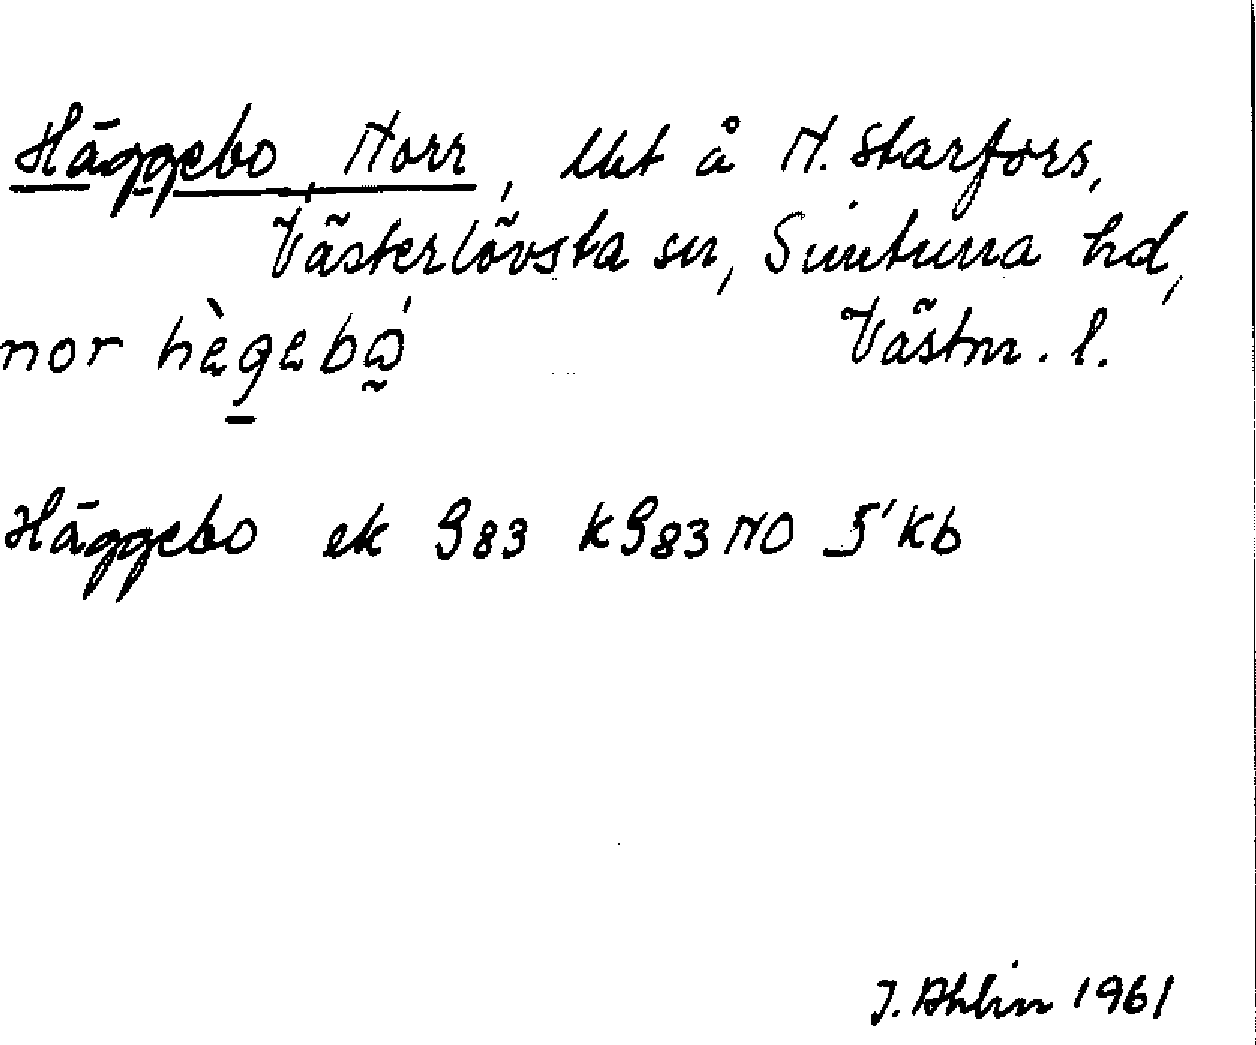 Häggebo, Norr, Utt å N. Starfors,
Västerlövsta sn, Simtuna hd,
nor hègebo̰̍ Västm. l.
Häggebo ek 983 K983NO 5' Kb
J. Ahlin 1961